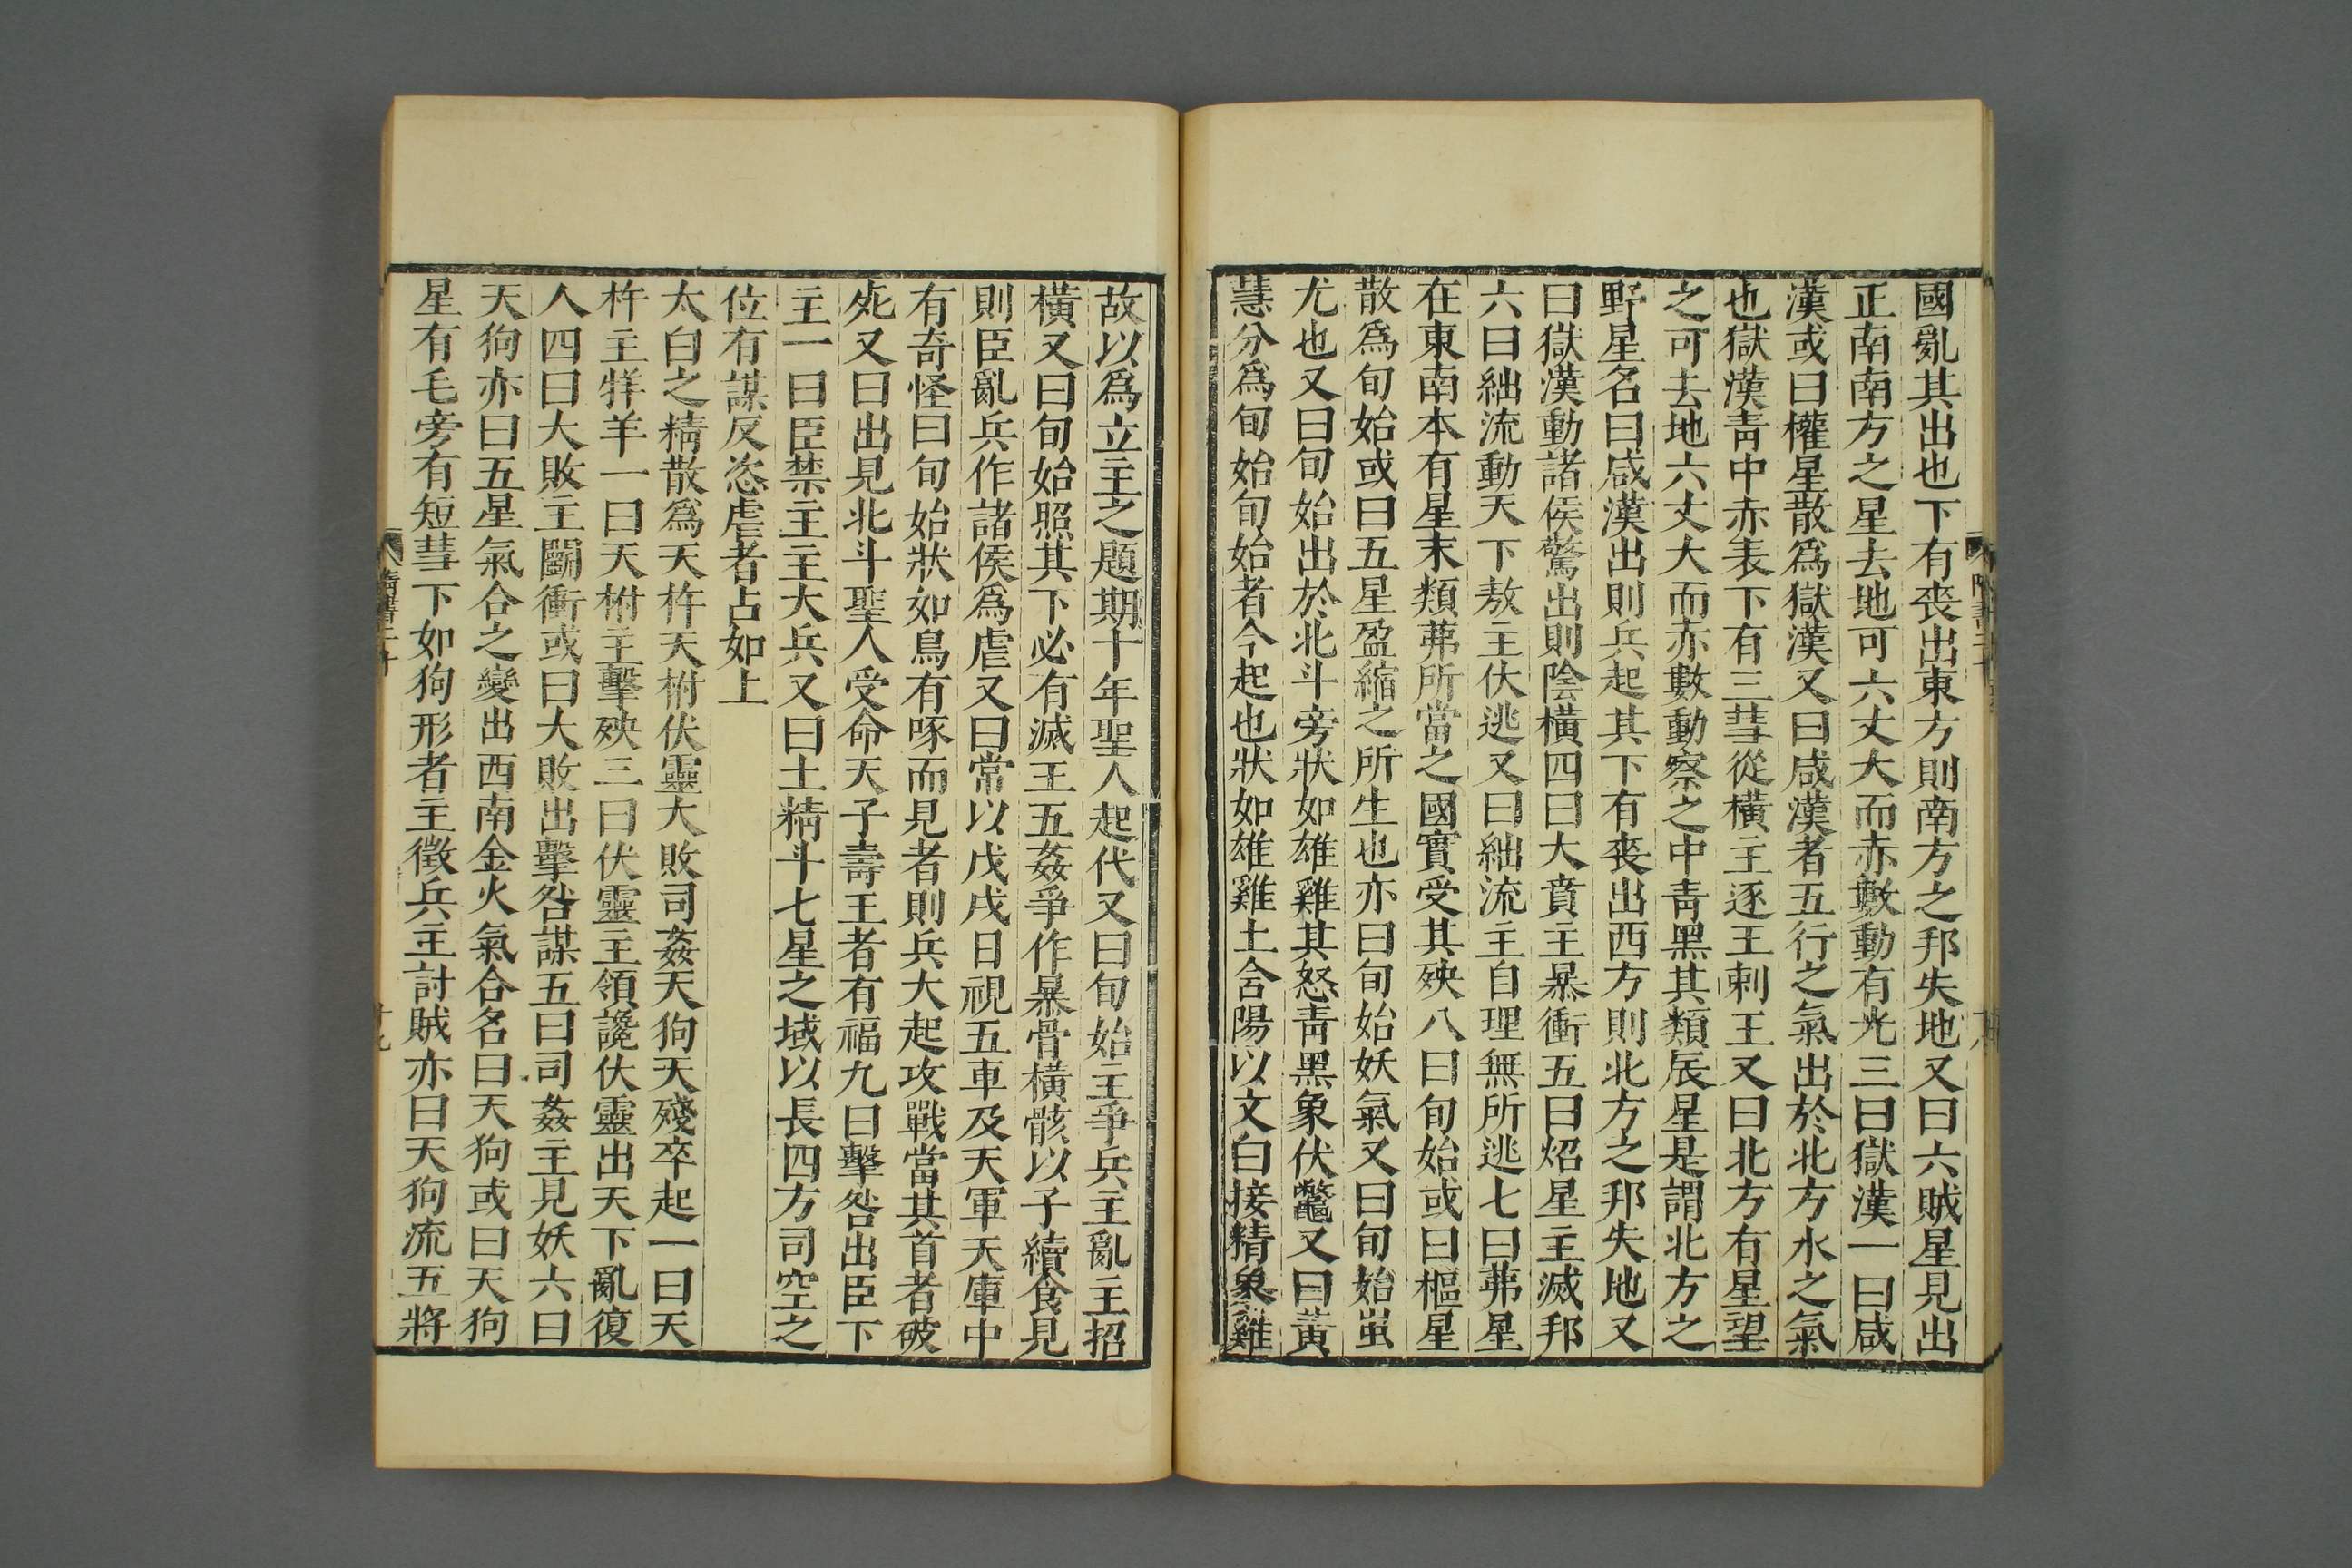 國亂其出也下有喪出東方則南方之邦失地又曰六賊星見出
正南南方之星去地可六丈大而赤數動有光三曰獄漢一曰咸
漢或曰權星散爲獄漢又曰咸漢者五行之氣出於北方水之氣
也獄漢青中赤表下有三彗從橫主逐王刺王又曰北方有星望
之可去地六丈大而赤數動察之中青黑其類辰星是謂北方之
野星名曰咸漢出則兵起其下有喪出西方則北方之邦失地又
曰獄漢動諸侯驚出則陰橫四曰大賁主暴衝五曰炤星主滅邦
六曰絀流動天下敖主伏逃又曰絀流主自理無所逃七曰茀星
在東南本有星末類茀所當之國實受其殃八曰旬始或曰樞星
散爲旬始或曰五星盈縮之所生也亦曰旬始妖氣又曰旬始蚩
尤也又曰旬始出於北斗旁狀如雄雞其怒青黑象伏鼈又曰黃
彗分爲旬始旬始者今起也狀如雄雞土含陽以交白接精象雞
故以爲立主之題期十年聖人起代又曰旬始主爭兵主亂主招
橫又曰旬始照其下必有滅王五姦爭作暴骨橫骸以子續食見
則臣亂兵作諸侯爲虐又曰常以戊戌日視五車及天軍天庫中
有奇怪曰旬始狀如鳥有喙而見者則兵大起攻戰當其首者破
死又曰出見北斗聖人受命天子壽王者有福九曰擊咎出臣下
主一曰臣禁主主大兵又曰土精斗七星之域以長四方司空之
位有謀反恣虐者占如上
太白之精散爲天杵天柎伏靈大敗司姦天狗天殘卒起一曰天
杵主牂羊一曰天柎主擊殃三曰伏靈主領讒伏靈出天下亂復
人四曰大敗主鬭衝或曰大敗出擊咎謀五曰司姦主見妖六曰
天狗亦曰五星氣合之變出西南金火氣合名曰天狗或曰天狗
星有毛旁有短彗下如狗形者主徵兵主討賊亦曰天狗流五將
隋書二十
十九